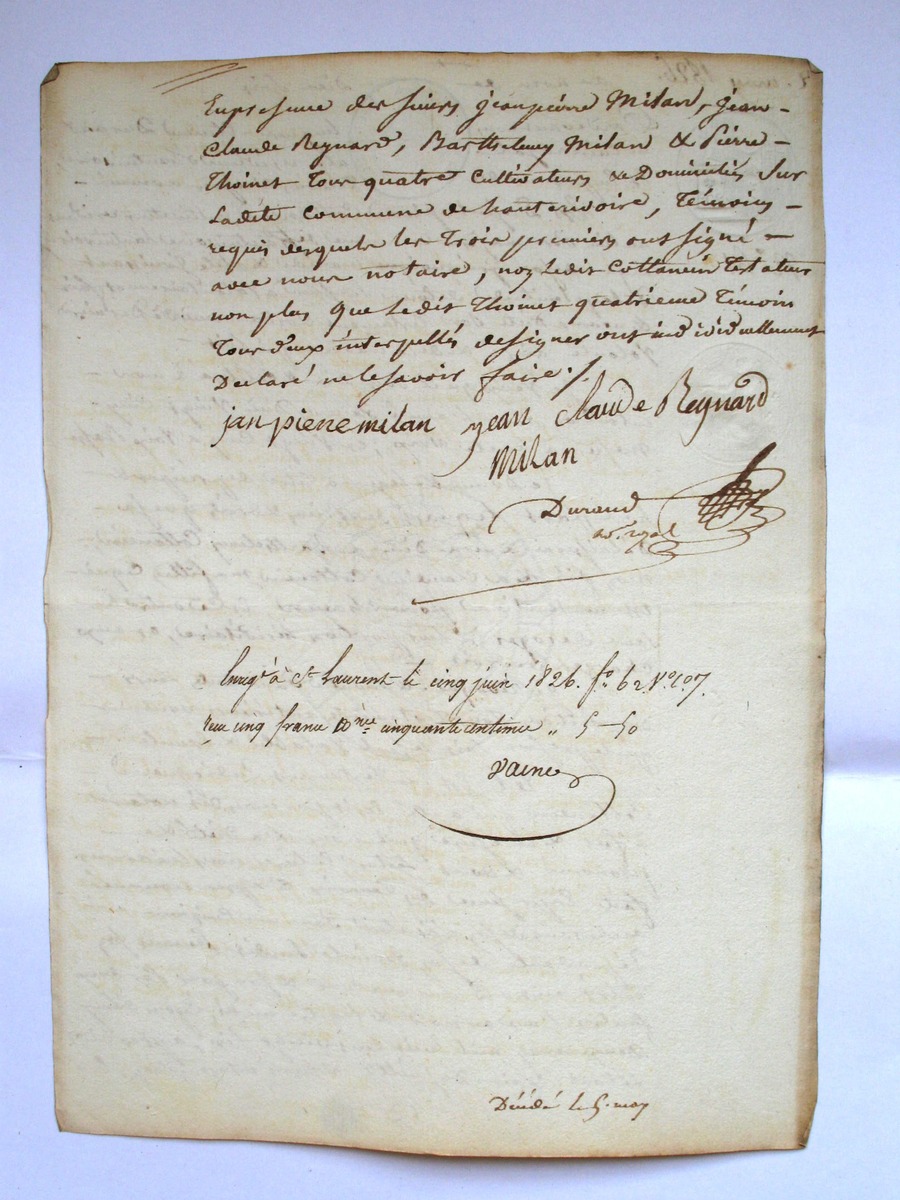 En presence des sieurs jeanpierre Milan, jean-
Claude Reynard, Barthelemy Milan & Pierre-
Thoinet Tous quatre Cultivateurs & Domiciliés Sur
Ladite Commune de hauterivoire, Témoins-
requis desquels les Trois premiers ont signé -
avec nous notaire, Ledit Testateur
non plus que Ledit Thoinet quatrieme Témoin
Tous d'eux interpellés de signer ont individuellement
Declaré ne le savoir faire ./.
jan piere milan jean claude Reynard
Milan
Duraud
no. royal
Enregé à St Laurent le cinq juin 1826. fo. 62 Vo. c. 7.
reçu cinq francs Dme cinquante centimes „ 5-50
Décédé le 5. may
1826